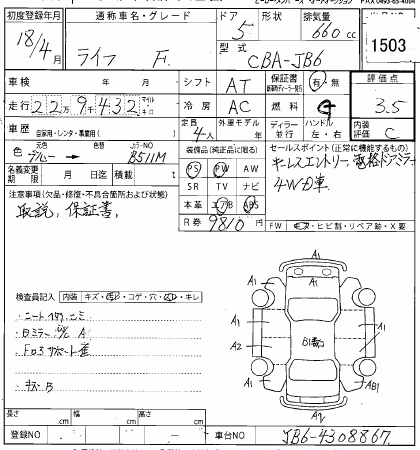 初度登録年月 通称車名・グレード ドア 形状 排気量
18/4月 ライフ F. 5 660 cc
型式 CBA-JB6 1503
車検 年 月 シフト AT 保証書 有・無 評価点
走行 22万9千432 マイル キロ 冷房 AC 燃料 3.5
車歴 自家用・レンタ・事業用( ) 定員 4人 外車モデル 年 ディーラー 並行 ハンドル 左・右 内装 評価 C
色 元色 ブルー → 色替 カラーNO B511M 装備品(純正品に限る) セールスポイント(正常に機能するもの)
キーレスエントリー,電格ドアミラー
名義変更期限 月 日迄 積載 t PS PW AW
4WD車
注意事項(欠品・修復・不具合箇所および状態) SR TV ナビ
取説,保証書, 本革 エアB ABS
R券 9810 円
FW キズ・ヒビ割・リペア跡・X要
検査員記入 内装 キズ・コゲ・穴・キレ
A1 A1 A1
A1 A1
A2 B1 A1
A1 AB1
A2
キズB
長さ cm 幅 cm 高さ cm
登録NO 車台NO JB6-4308867